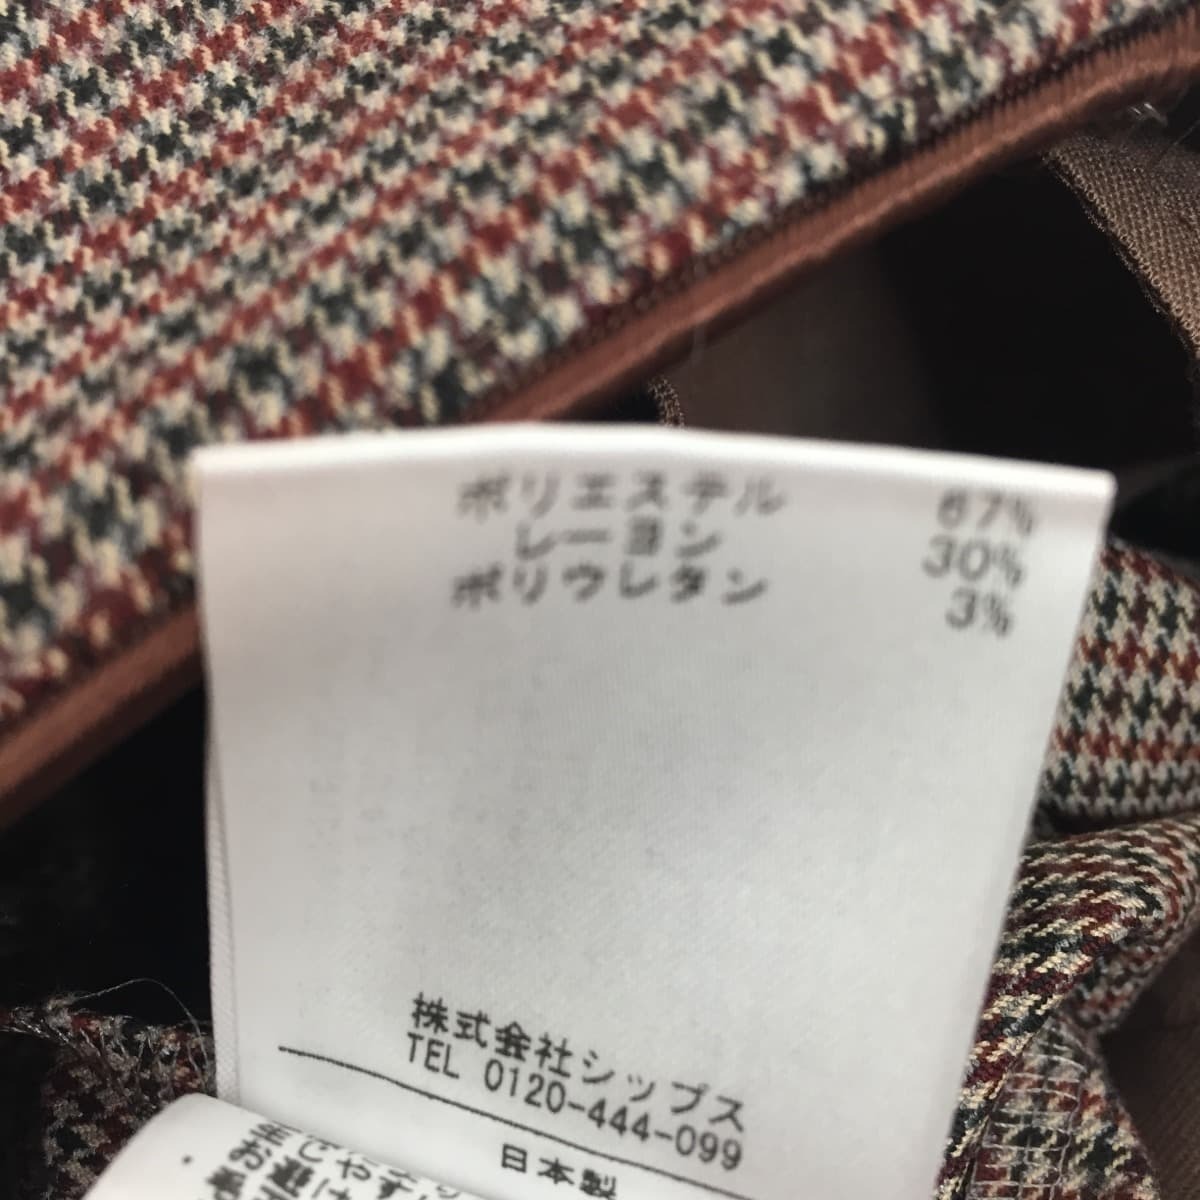 ポリエステル 67%
レーヨン 30%
ポリウレタン 3%
株式会社シップス
TEL 0120-444-099
日本製